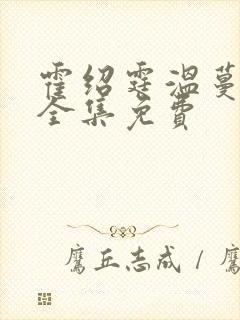 霍绍霆温蔓
全集免费
鹰丘志成 / 鹰